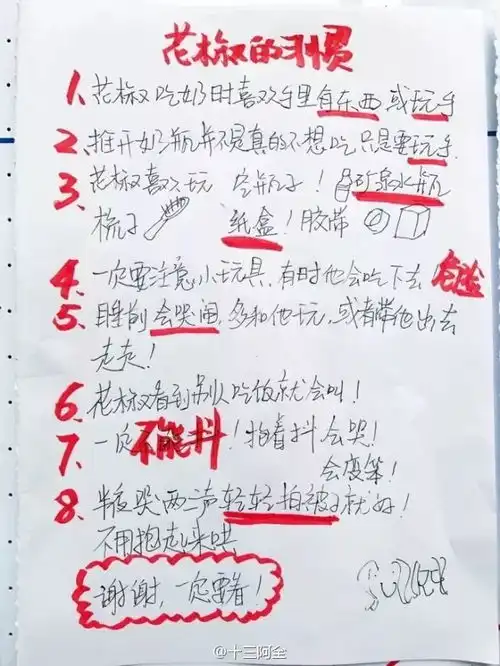 花椒的习惯
1、花椒吃奶时喜欢手里有东西或玩手
2、推开奶瓶并不是真的不想吃只是要玩手
3 花椒喜欢玩 空瓶子！矿泉水瓶
梳子 纸盒！胶带
4、一定要注意小玩具，有时他会吃下去 危险
5、睡前会哭闹，多和他玩，或者带他出去
走走！
6、花椒看到别人吃饭就会叫！
7、一定不能抖！抱着抖会哭！
会变笨！
8、半夜哭两声轻轻拍被子就好！
不用抱起来哄
谢谢，一定要看！
@十三阿全